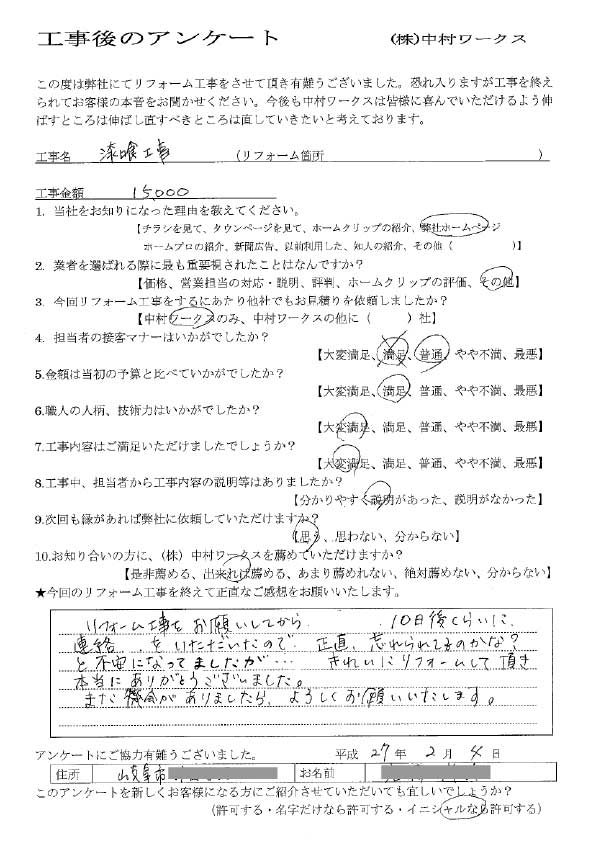 工事後のアンケート (株)中村ワークス
この度は弊社にてリフォーム工事をさせて頂き有難うございました。恐れ入りますが工事を終え
られてお客様の本音をお聞かせください。今後も中村ワークスは皆様に喜んでいただけるよう伸
ばすところは伸ばし直すべきところは直していきたいと考えております。
工事名 漆喰工事 (リフォーム箇所 )
工事金額 15,000
1. 当社をお知りになった理由を教えてください。
【チラシを見て、タウンページを見て、ホームクリップの紹介、弊社ホームページ
ホームプロの紹介、新聞広告、以前利用した、知人の紹介、その他（ ）】
2. 業者を選ばれる際に最も重要視されたことはなんですか？
【価格、営業担当の対応・説明、評判、ホームクリップの評価、その他】
3. 今回リフォーム工事をするにあたり他社でもお見積りを依頼しましたか？
【中村ワークスのみ、中村ワークスの他に（ ）社】
4. 担当者の接客マナーはいかがでしたか？
【大変満足、満足、普通、やや不満、最悪】
5.金額は当初の予算と比べていかがでしたか？
【大変満足、満足、普通、やや不満、最悪】
6.職人の人柄、技術力はいかがでしたか？
【大変満足、満足、普通、やや不満、最悪】
7.工事内容はご満足いただけましたでしょうか？
【大変満足、満足、普通、やや不満、最悪】
8.工事中、担当者から工事内容の説明等はありましたか？
【分かりやすく説明があった、説明がなかった】
9.次回も縁があれば弊社に依頼していただけますか？
【思う、思わない、分からない】
10.お知り合いの方に、(株) 中村ワークスを薦めていただけますか？
【是非薦める、出来れば薦める、あまり薦めれない、絶対薦めない、分からない】
★今回のリフォーム工事を終えて正直なご感想をお願いいたします。
リフォーム工事をお願いしてから 10日後くらいに、
連絡 をいただいたので 正直、忘れられてるのかな？
と不安になってましたが… きれいにリフォームして頂き
本当にありがとうございました。
また機会がありましたら、よろしくお願いいたします。
アンケートにご協力有難うございました。 平成 27 年 2 月 4 日
住所 岐阜市 お名前
このアンケートを新しくお客様になる方にご紹介させていただいても宜しいでしょうか？
(許可する・名字だけなら許可する・イニシャルなら許可する)